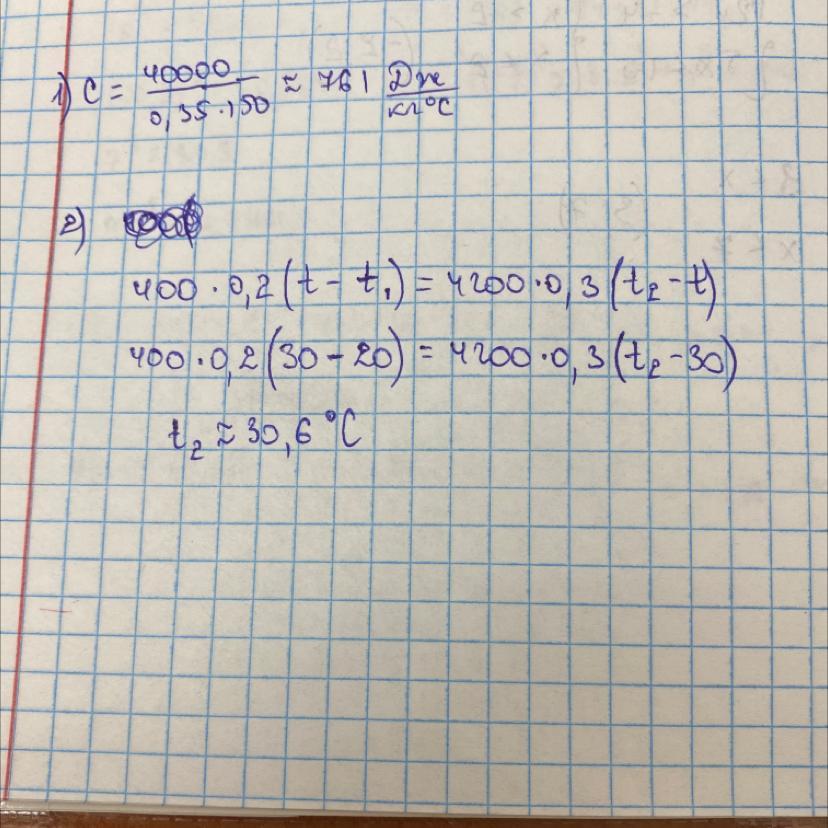 1) C = 40000 / 0,35·150 ≈ 761 Дж / кг°C
2)
400 · 0,2 (t - t₁) = 4200·0,3 (t₂ - t)
400 · 0,2 (30 - 20) = 4200·0,3 (t₂ - 30)
t₂ ≈ 30,6 °C